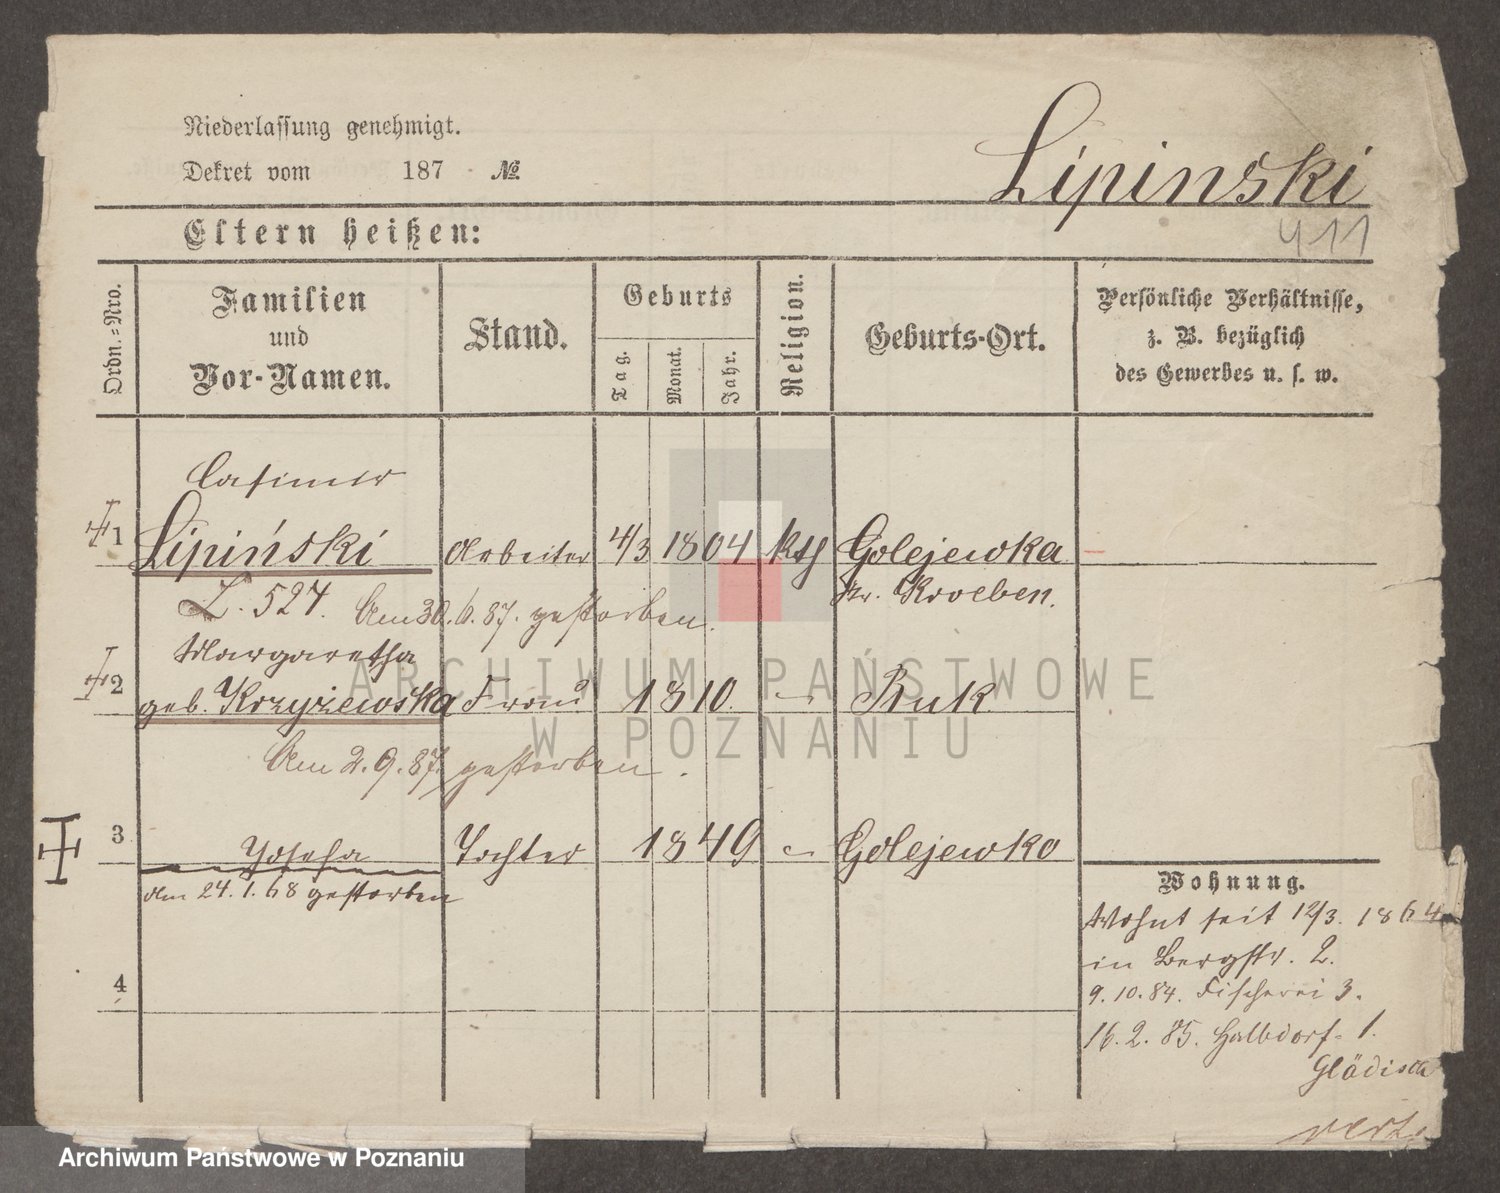 Niederlassung genehmigt.
Dekret vom 187 №
Lipinski
411
Eltern heißen:
Ordn.-Nro.
Familien
und
Vor-Namen.
Stand.
Geburts
Tag.
Monat.
Jahr.
Religion.
Geburts-Ort.
Persönliche Verhältnisse,
z. B. bezüglich
des Gewerbes u. s. w.
Casimir
1 Lipiński Arbeiter 4/3 1804 kth Golejewka
Kr. Kroeben.
L. 527. Am 30.6.87. gestorben.
Margaretha
2 geb. Krzyżewska Frau 1810. - Buk
Am 2.9.87. gestorben.
3 Josefa Tochter 1849 - Golejewko
am 24.1.68 gestorben
4
Wohnung.
Wohnt seit 12/3. 1864
in Bergstr. 2.
9.10.84. Fischerei 3.
16.2.85. Halbdorf. 1.
Glädisch
vert.
ARCHIWUM PAŃSTWOWE
W POZNANIU
Archiwum Państwowe w Poznaniu